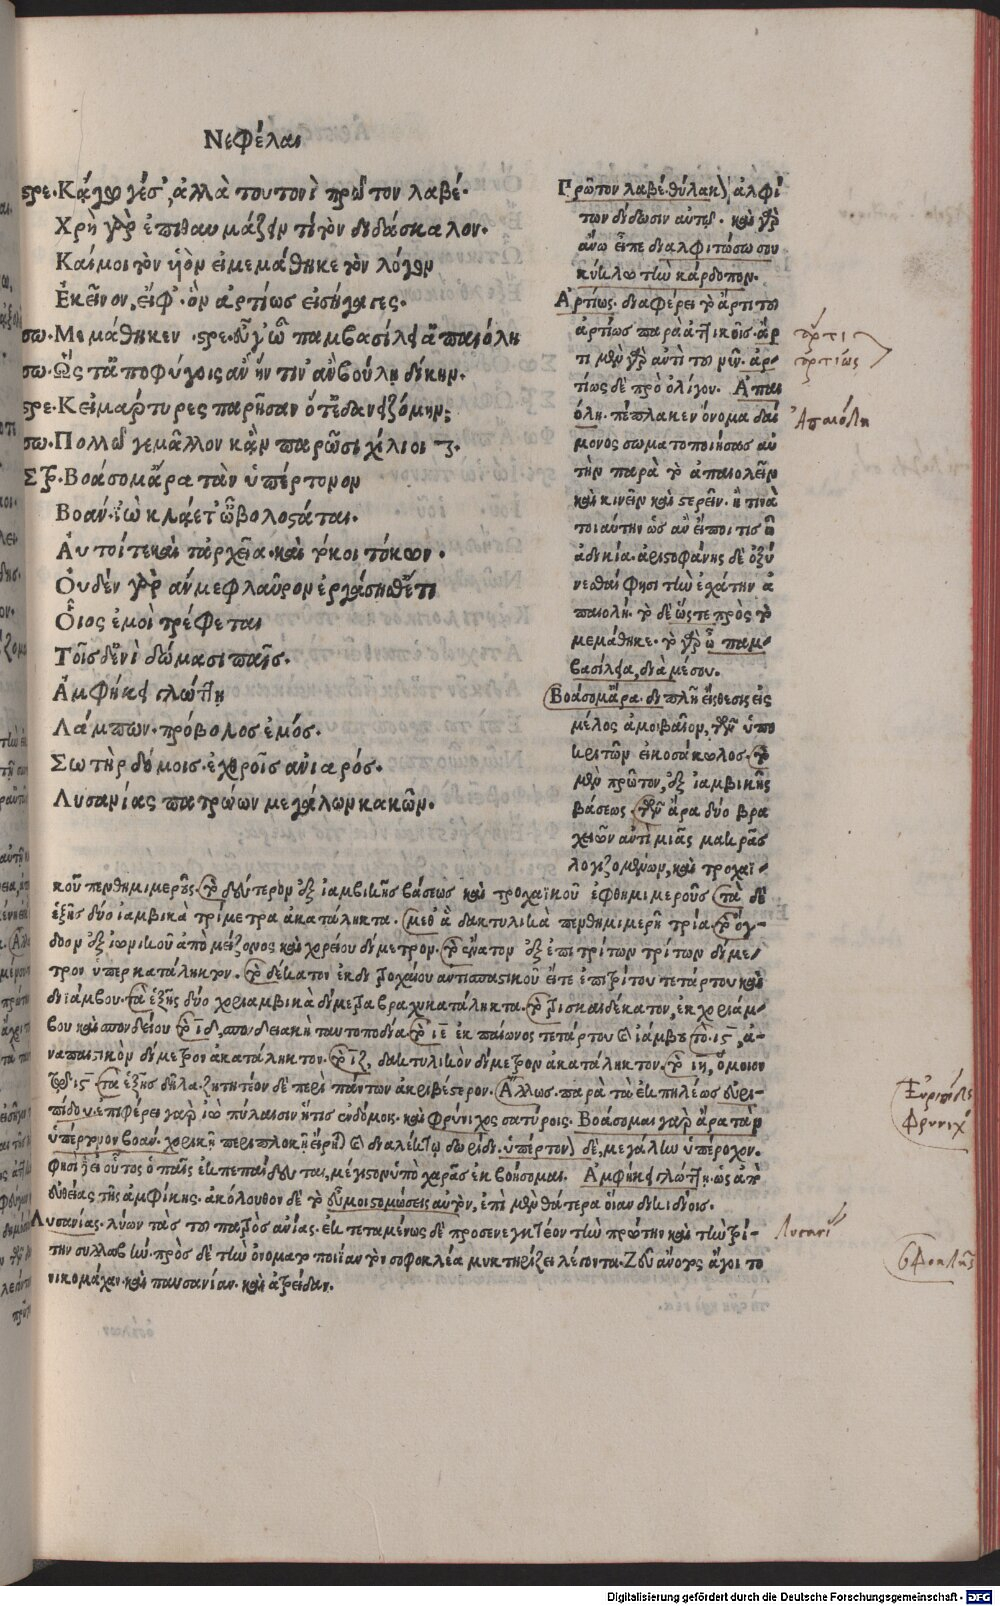 Νεφέλαι
ςρε. Κἄγωγέσ’, ἀλλὰ τουτονὶ πρῶτον λαβέ.
Χρὴ γὰρ ἐπιθαυμάζειν τὶ τὸν διδάσκαλον.
Καί μοι τὸν ὑιὸν εἰ μεμάθηκε τὸν λόγον
Ἐκεῖνον, εἴφ’ ὃν ἀρτίως εἰσήγαγες.
σω. Μεμάθηκεν. ςρε. εὖγ’ ὦ παμβασίλει’ ἀπαιόλη
σω. Ὥς τ’ ἀποφύγοις ἂν ἥν τιν’ ἂν βούλῃ δίκην.
ςρε. Κεἰ μάρτυρες παρῆσαν ὅτ’ ἐδανειζόμην;
σω. Πολλῷ γε μᾶλλον κἂν παρῶσι χίλιοι
Σρ. Βοάσομἄρα τὰν ὑπέρτονον
Βοάν. ἰὼ κλάετ’ ὦβολοςάται.
Ἀυτοί τε καὶ τἀρχεῖα. καὶ τόκοι τόκων.
Ὀυδὲν γὰρ ἄν με φλαῦρον ἐργάσησθ’ ἔτι
Οἷος ἐμοὶ τρέφεται
Τοῖσδ’ ἐνὶ δώμασι παῖς.
Ἀμφήκει γλώττῃ
Λάμπων. πρόβολος ἐμός.
Σωτὴρ δόμοις. ἐχθροῖς ἀνιαρός.
Λυσανίας πατρώων μεγάλων κακῶν.
Πρῶτον λαβέ. θύλακον ἀλφί
των δίδωσιν αὐτῷ. καὶ γὰρ
ἄνω εἶπε διαλφιτώσω σου
κύκλῳ τὴν κάρδοπον.
Ἀρτίως. διαφέρει τὸ ἄρτι τοῦ
ἀρτίως παρὰ ἀττικοῖς. ἄρ
τι μὲν γὰρ ἀντὶ τοῦ νῦν. ἀρ-
τίως δὲ πρὸ ὀλίγου. Ἀπαι
όλη. πέπλακεν ὄνομα δαί
μονος σωματοποιήσας αὐ
τὴν παρὰ τὸ ἀπαιολεῖν
καὶ κινεῖν καὶ ςερεῖν. ἢ τινὰ
τοιαύτην ὡς ἂν εἴποι τις ὦ
ἀδικία. ἀριςοφάνης δὲ ὀξύ
νεσθαί φησι τὴν ἐσχάτην ἀ
παιολή. τὸ δὲ ὥςτε πρὸς τὸ
μεμάθηκε. τὸ γὰρ ὦ παμ-
βασίλεια, διὰ μέσου.
Βοάσομἄρα. διπλῆ εἴσθεσις εἰς
μέλος ἀμοιβαῖον, τῶν ὑπο
κριτῶν εἰκοσάκωλος. τὸ
μὲν πρῶτον, ἐξ ἰαμβικῆς
βάσεως. τῶν ἄρα δύο βρα
χειῶν ἀντὶ μιᾶς μακρᾶς
λογιζομένων, καὶ τροχαϊ-
κοῦ πενθημιμεροῦς. τὸ δεύτερον ἐξ ἰαμβικῆς βάσεως καὶ τροχαϊκοῦ ἐφθημιμεροῦς τὰ δὲ
ἑξῆς δύο ἰαμβικὰ τρίμετρα ἀκατάληκτα. μεθ’ ἃ δακτυλικὰ πενθημιμερῆ τρία. τὸ ὄγ-
δοον ἐξ ἰωνικοῦ ἀπὸ μείζονος καὶ χορείου δίμετρον. τὸ ἔνατον ἐξ ἐπιτρίτων τρίτων δίμε-
τρον ὑπερκατάληκτον. τὸ δέκατον ἐκ διτροχαίου ἀντισπαςικοῦ εἴτε ἐπιτρίτου τετάρτου καὶ
διϊάμβου. τὰ ἑξῆς δύο χοριαμβικὰ δίμετρα βραχυκατάληκτα. τὸ τρισκαιδέκατον, ἐκ χοριάμ-
βου καὶ σπονδείου τὸ ιδ, σπονδειακὴ ταυτοποδία. τὸ ιε ἐκ παίωνος τετάρτου καὶ ἰάμβου τὸ ις, ἀ-
ναπαιςικὸν δίμετρον ἀκατάληκτον. τὸ ιζ, δακτυλικὸν δίμετρον ἀκατάληκτον. τὸ ιη, ὅμοιον
τῷ ις τὰ ἑξῆς δῆλα. ζητητέον δὲ περὶ πάντων ἀκριβέςερον. Ἄλλως. παρὰ τὰ ἐκ πηλέως εὐρι-
πίδου. ἐπιφέρει γὰρ ἰὼ πύλαισιν ἥτις ἐν δόμοις. καὶ φρύνιχος σατύροις. Βοάσομαι γὰρ ἄρα τὰν
ὑπέρτονον βοάν. χορικῇ περιπλοκῇ εἴρηται καὶ διαλέκτῳ δωρίδι. ὑπέρτονον δὲ, μεγάλην ὑπέρογκον.
φησὶ γὰρ εἰ οὗτος ὁ παῖς ἐκπεπαίδευται, μέγιςον ὑπὸ χαρᾶς ἐκβοήσομαι. Ἀμφήκει γλώττῃ. ὡς ἀπ’
εὐθείας τῆς ἀμφήκης. ἀκόλουθον δὲ τὸ εὖ μοι ςομώσεις αὐτὸν, ἐπὶ μὲν θάτερα οἵαν δικιδίοις.
Λυσανίας. λύων τὰς τοῦ πατρὸς ἀνίας. ἐκτεταμένως δὲ προσενεγκτέον τὴν πρώτην καὶ τὴν τρί-
την συλλαβήν. πρὸς δὲ τὴν ὀνοματοποιίαν τὸν σοφοκλέα μυκτηρίζει λέγοντα. Ζεὺς ἄνοςος ἄγοι τὸ
νικομάχαν. καὶ παυσανίαν. καὶ ἀτρείδαν.
ἄρτι
ἀρτίως
Ἀπαιόλη
Εὐριπίδης
Φρυνιχ
Λυσανί
Σοφοκλῆς
Digitalisierung gefördert durch die Deutsche Forschungsgemeinschaft - DFG